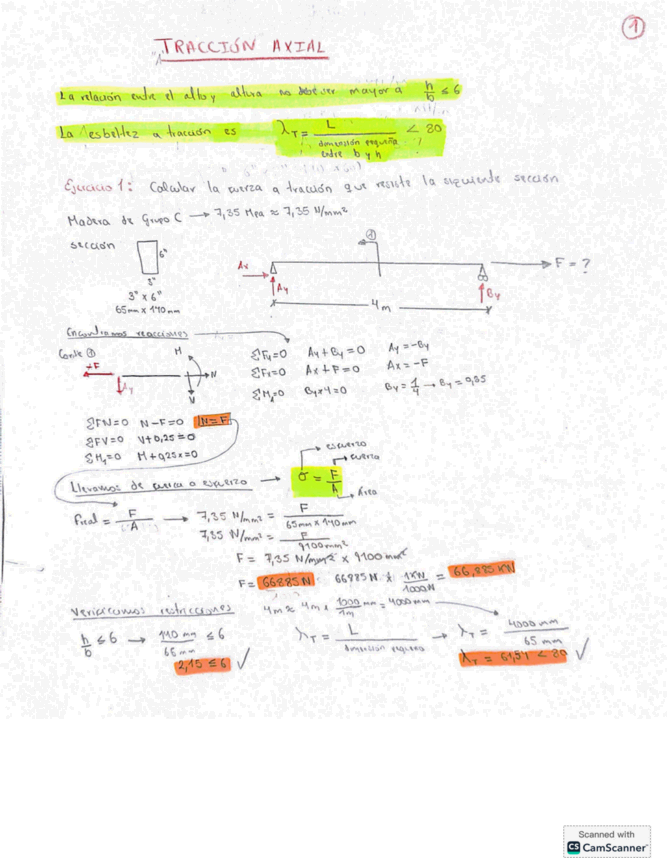 1
"TRACCIÓN AXIAL
La relación entre el alto y altura no debe ser mayor a h/b ≤ 6
La lesbeltez a tracción es λT = L / dimensión pequeña entre b y h < 80
Ejercicio 1: Calcular la fuerza a tracción que resiste la siguiente sección
Madera de Grupo C → 7,35 Mpa ≈ 7,35 N/mm²
sección
6"
3"
3" x 6"
65mm x 140mm
1
Ax
Ay
By
F = ?
4m
Encontramos reacciones
Corte 1
+F
Ay
M
N
V
ΣFy=0 Ay + By = 0 Ay = -By
ΣFx=0 Ax + F = 0 Ax = -F
ΣMA=0 By x 4 = 0 By = 1/4 → By = 0,25
ΣFN=0 N-F=0 N=F
ΣFV=0 V+0,25=0
ΣM1=0 M+0,25x=0
Llevamos de fuerza a esfuerzo → σ = F/A
esfuerzo
fuerza
Área
freal = F/A → 7,35 N/mm² = F / 65mm x 140mm
7,35 N/mm² = F / 9100mm²
F = 7,35 N/mm² x 9100 mm²
F = 66885 N 66885 N x 1KN/1000N = 66,885 KN
Verificamos restricciones
4m ≈ 4m x 1000 mm/1m = 4000mm
h/b ≤ 6 → 140 mm / 65 mm ≤ 6
2,15 ≤ 6 ✓
λT = L / dimensión pequeña → λT = 4000 mm / 65 mm
λT = 61,54 < 80 ✓
Scanned with
CS CamScanner